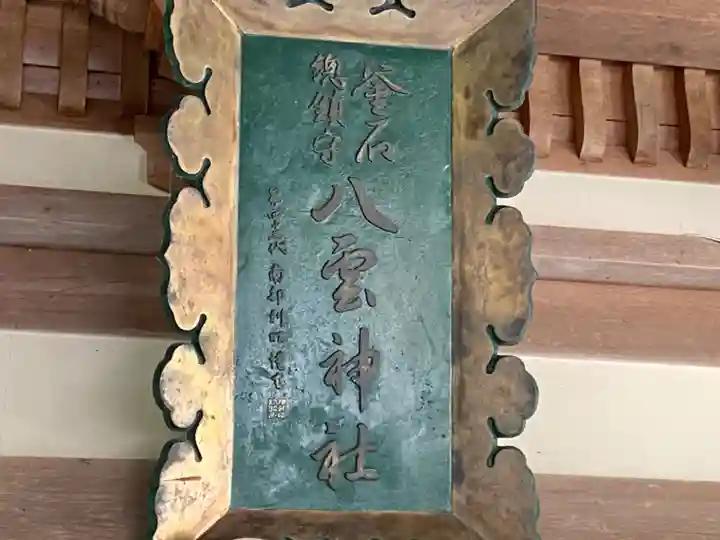 釜石
總鎮守
八雲神社
南部利昭